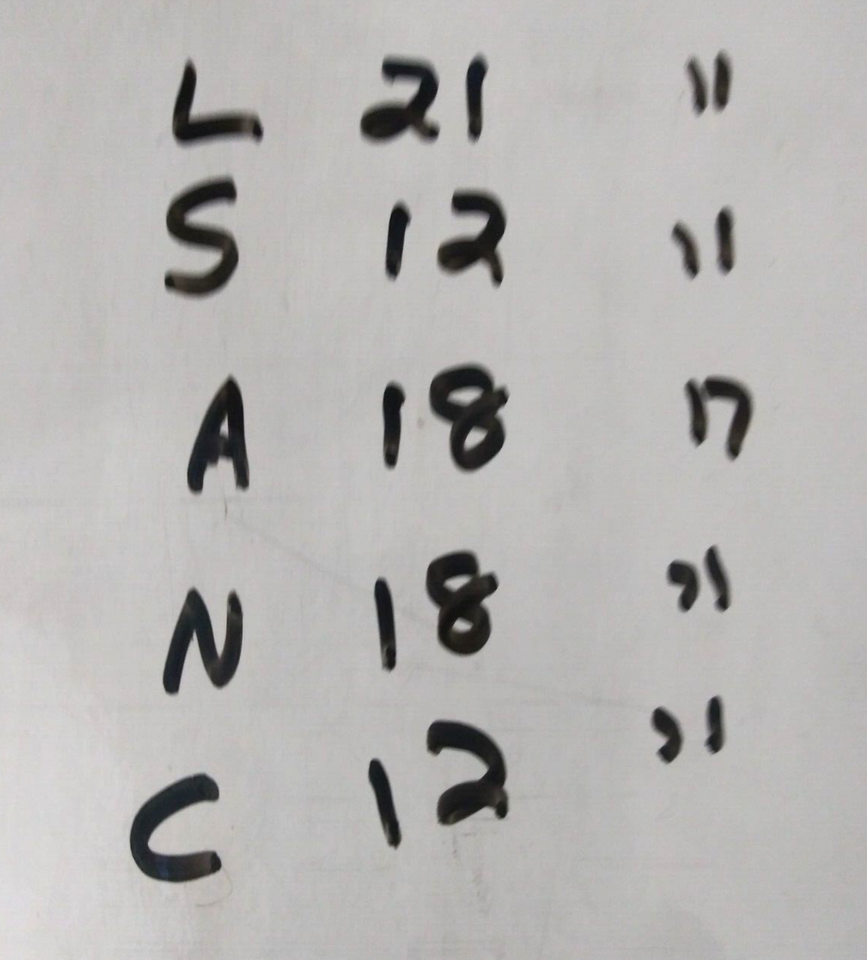 L 21 "
S 12 "
A 18 "
N 18 "
C 12 "